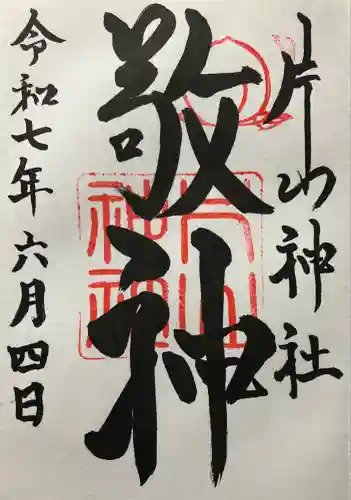 片山神社
敬神
片山
神社
令和七年六月四日